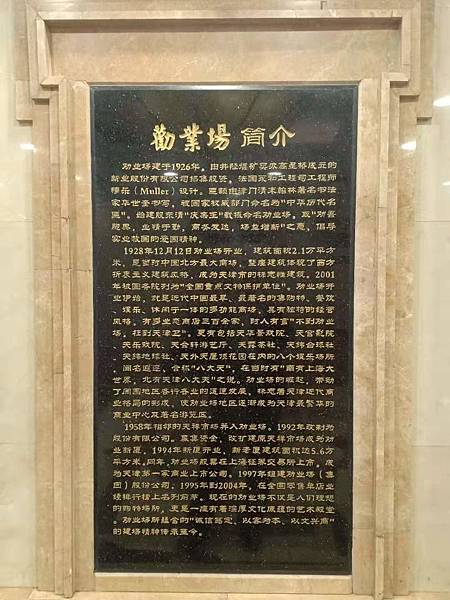 勸業場 简介
劝业场建于1926年。由井陉煤矿买办高星桥成立的
新业股份有限公司招集股资，法国永和工程司工程师
穆乐（Muller）设计。三颗由津门清末翰林著名书法
家华世奎书写，被国家权威部门命名为"中华历代名
匾"。始建股东请"庆亲王"载振命名劝业场，取"劝吾
胞舆，业精于勤，商务发达，场益增新"之意，倡导
实业救国的爱国精神。
1928年12月12日劝业场开业，建筑面积2.1万平方
米，是当时中国北方最大商场，整座建筑体现了西方
折衷主义建筑风格，成为天津市的标志性建筑。2001
年被国务院列为"全国重点文物保护单位"。劝业场开
业伊始，就是近代中国最早、最著名的集购物、餐饮
、娱乐、休闲于一体的多功能商场，具有独特的经营
风格。有多业态商店三百余家，时人有言"不到劝业
场，枉到天津卫"。更有包括天华景戏院、天宫影院
、天乐戏院、天会轩游艺厅、天露茶社、天纬台球社
、天纬地球社、天外天屋顶花园在内的八个娱乐场所
，闻名遐迩，合称"八大天"，在当时有"南有上海大
世界，北有天津八大天"之说。劝业场的崛起，带动
了周围地区各行各业的迅速发展，标志着天津近代商
业格局的形成，使劝业场地区逐渐成为天津最繁华的
商业中心及著名游览区。
1958年相邻的天祥市场并入劝业场。1992年改制为
股份有限公司。募集资金，改扩建原天祥市场成为劝
业新厦，1994年新厦开业，新老厦建筑面积达5.6万
平方米。同年，劝业场股票在上海证券交易所上市，成
为天津第一家商业上市公司。1997年组建劝业场（集
团）股份公司。1995年到2004年，在全国零售单店业
绩排行榜上名列前茅。现在的劝业场不仅是人们理想
的购物场所，更是一座有着深厚文化底蕴的艺术殿堂
。劝业场所蕴含的"诚信笃定、以客为本、以文兴商"
的建场精神传承至今。